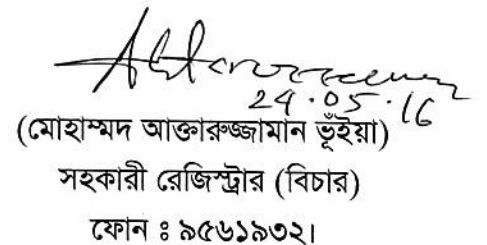 24.05.16
(মোহাম্মদ আক্তারুজ্জামান ভূঁইয়া)
সহকারী রেজিস্ট্রার (বিচার)
ফোন ঃ ৯৫৬১৯৩২।